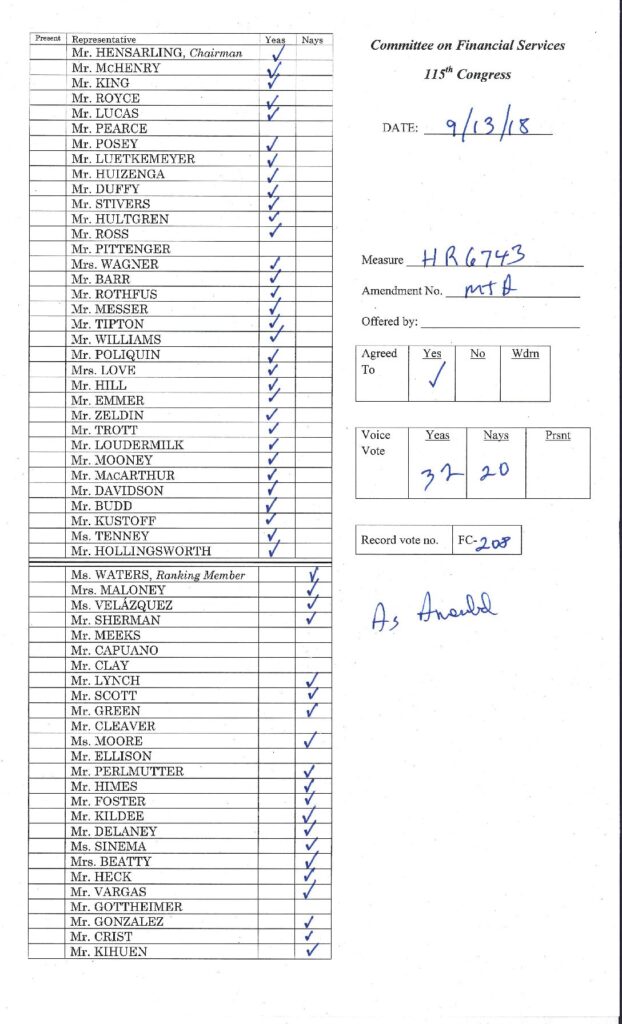 Present Representative Yeas Nays
Mr. HENSARLING, Chairman ✓
Mr. MCHENRY ✓
Mr. KING ✓
Mr. ROYCE ✓
Mr. LUCAS ✓
Mr. PEARCE
Mr. POSEY ✓
Mr. LUETKEMEYER ✓
Mr. HUIZENGA ✓
Mr. DUFFY ✓
Mr. STIVERS ✓
Mr. HULTGREN ✓
Mr. ROSS ✓
Mr. PITTENGER
Mrs. WAGNER ✓
Mr. BARR ✓
Mr. ROTHFUS ✓
Mr. MESSER ✓
Mr. TIPTON ✓
Mr. WILLIAMS ✓
Mr. POLIQUIN ✓
Mrs. LOVE ✓
Mr. HILL ✓
Mr. EMMER ✓
Mr. ZELDIN ✓
Mr. TROTT ✓
Mr. LOUDERMILK ✓
Mr. MOONEY ✓
Mr. MACARTHUR ✓
Mr. DAVIDSON ✓
Mr. BUDD ✓
Mr. KUSTOFF ✓
Ms. TENNEY ✓
Mr. HOLLINGSWORTH ✓
Ms. WATERS, Ranking Member ✓
Mrs. MALONEY ✓
Ms. VELÁZQUEZ ✓
Mr. SHERMAN ✓
Mr. MEEKS
Mr. CAPUANO
Mr. CLAY
Mr. LYNCH ✓
Mr. SCOTT ✓
Mr. GREEN ✓
Mr. CLEAVER
Ms. MOORE ✓
Mr. ELLISON
Mr. PERLMUTTER ✓
Mr. HIMES ✓
Mr. FOSTER ✓
Mr. KILDEE ✓
Mr. DELANEY ✓
Ms. SINEMA ✓
Mrs. BEATTY ✓
Mr. HECK ✓
Mr. VARGAS ✓
Mr. GOTTHEIMER
Mr. GONZALEZ ✓
Mr. CRIST ✓
Mr. KIHUEN ✓
Committee on Financial Services
115th Congress
DATE: 9/13/18
Measure HR6743
Amendment No. MTA
Offered by:
Agreed To Yes No Wdrn
✓
Voice Vote Yeas Nays Prsnt
32 20
Record vote no. FC-208
As